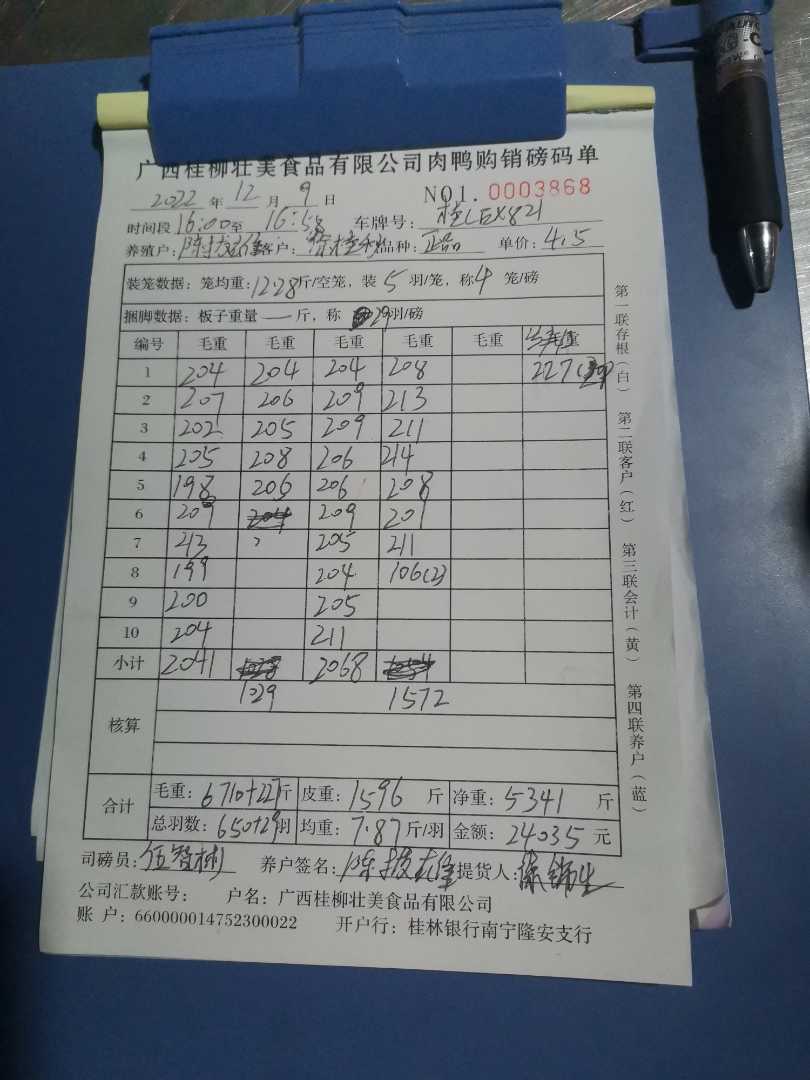 广西桂柳壮美食品有限公司肉鸭购销磅码单
2022 年 12 月 9 日 NO1. 0003868
时间段 16:00 至 16:58 车牌号: 桂CEX821
养殖户: 客户: 品种: 正品 单价: 4.5
装笼数据: 笼均重: 12.28 斤/空笼, 装 5 羽/笼, 称 4 笼/磅
捆脚数据: 板子重量 — 斤, 称 29 羽/磅
编号 毛重 毛重 毛重 毛重 毛重 重
1 204 204 204 208 227
2 207 206 209 213
3 202 205 209 211
4 205 208 206 214
5 198 206 206 208
6 209 204 209 201
7 213 205 211
8 199 204 106(2)
9 200 205
10 204 211
小计 2041 2068
核算 1029 1572
合计 毛重: 6710+227 斤 皮重: 1596 斤 净重: 5341 斤
总羽数: 650+29 羽 均重: 7.87 斤/羽 金额: 24035 元
司磅员: 伍智彬 养户签名: 提货人:
公司汇款账号: 户名: 广西桂柳壮美食品有限公司
账 户: 660000014752300022 开户行: 桂林银行南宁隆安支行
第一联存根(白) 第二联客户(红) 第三联会计(黄) 第四联养户(蓝)